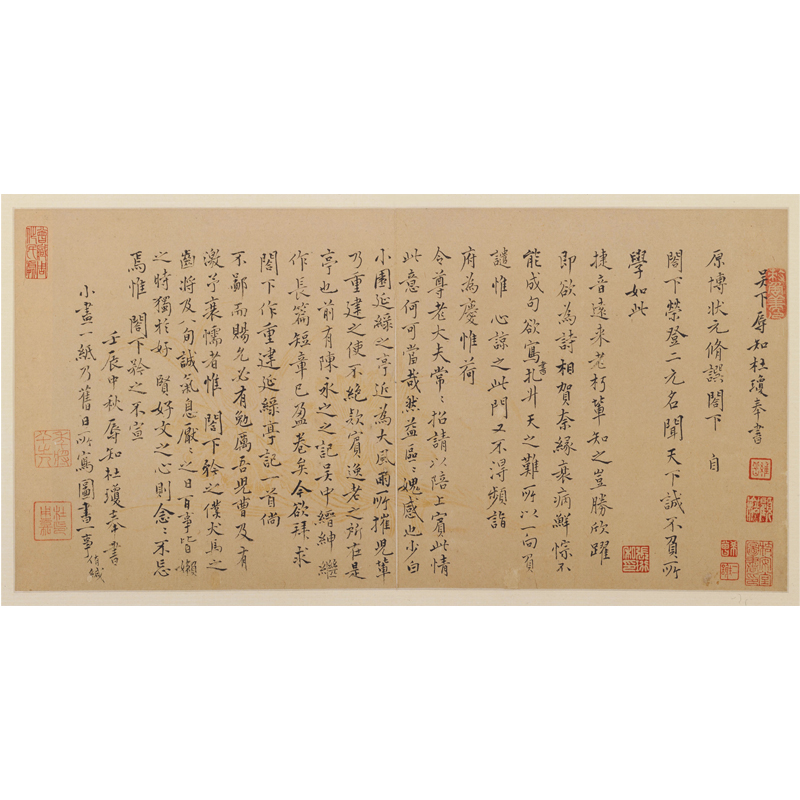 吴下辱知杜瓊奉書
原博狀元脩譔閣下 自
閣下榮登二元名聞天下誠不負所
學如此
捷音遠来老朽輩知之豈勝欣躍
即欲為詩相賀柰緣衰病鮮悰不
能成句欲寫書扎升天之難所以一向負
譴惟 心諒之此門又不得頻詣
府為慶惟荷
令尊老大夫常〻招請以陪上賓此情
此意何可當哉然益區〻媿感也少白
小圃延綠之亭近為大風雨所摧兒輩
乃重建之使不絕欵賓逸老之所在是
亭也前有陳永之之記吴中縉紳繼
作長篇短章已盈卷矣今欲拜求
閣下作重建延綠亭記一首倘
不鄙而賜允必有勉厲吾兒曹及有
激予衰懦者惟 閣下矜之僕犬馬之
齒將及八旬誠氣息厭〻之日百事皆嬾
之時獨於好 賢好文之心則念〻不忘
焉惟 閣下矜之不宣
壬辰中秋辱知杜瓊奉書
小畫一紙乃舊日所寫圖書一事伯緘